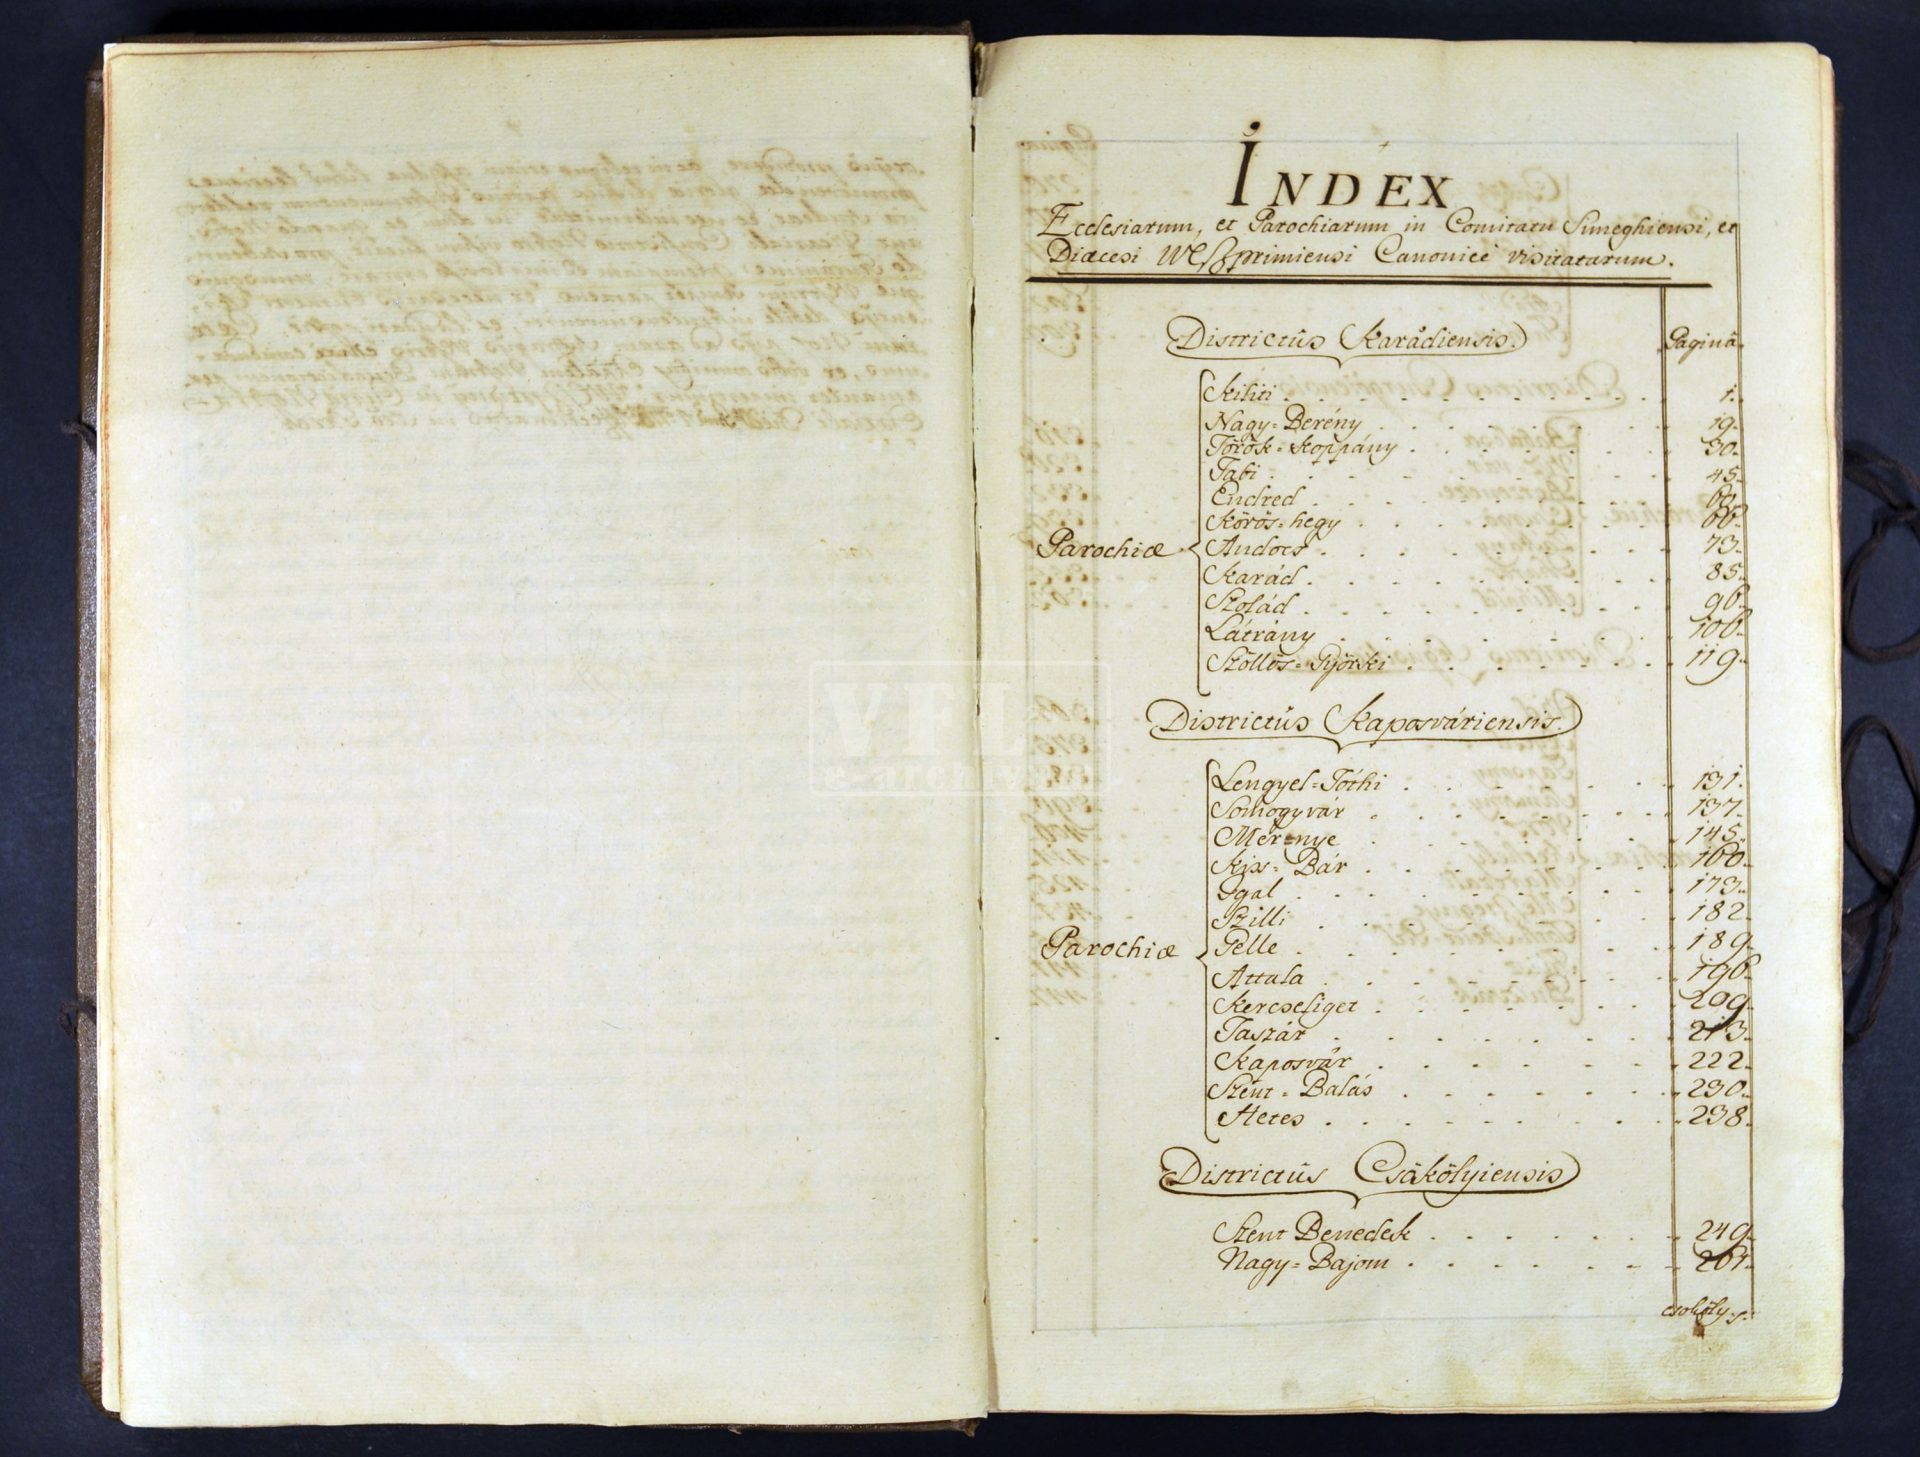 INDEX
Ecclesiarum, et Parochiarum in Comitatu Simeghiensi, et
Diœcesi Weszprimiensi Canonicè visitatarum.
Districtûs Karádiensis.
Pagina
Kiliti 1.
Nagy=Berény 19.
Török=Koppány 30.
Tabi 45.
Endréd
Körös=hegy 66.
Parochiæ
Andocs 73.
Karád 85.
Szolád 96.
Látrány 106.
Szöllös=Györki 119.
Districtûs Kaposváriensis.
Lengyel=Tóthi 131.
Somogyvár 137.
Merenye 145.
Kiss=Bár 160.
Igal 173.
Szilli 182.
Parochiæ
Pelle 189.
Attala 196.
Kercseliget 209.
Taszár 213.
Kaposvár 222.
Szent=Balás 230.
Hetes 238.
Districtûs Csákölyiensis
Szent Benedek 249.
Nagy=Bajom
VFL
e-archivum